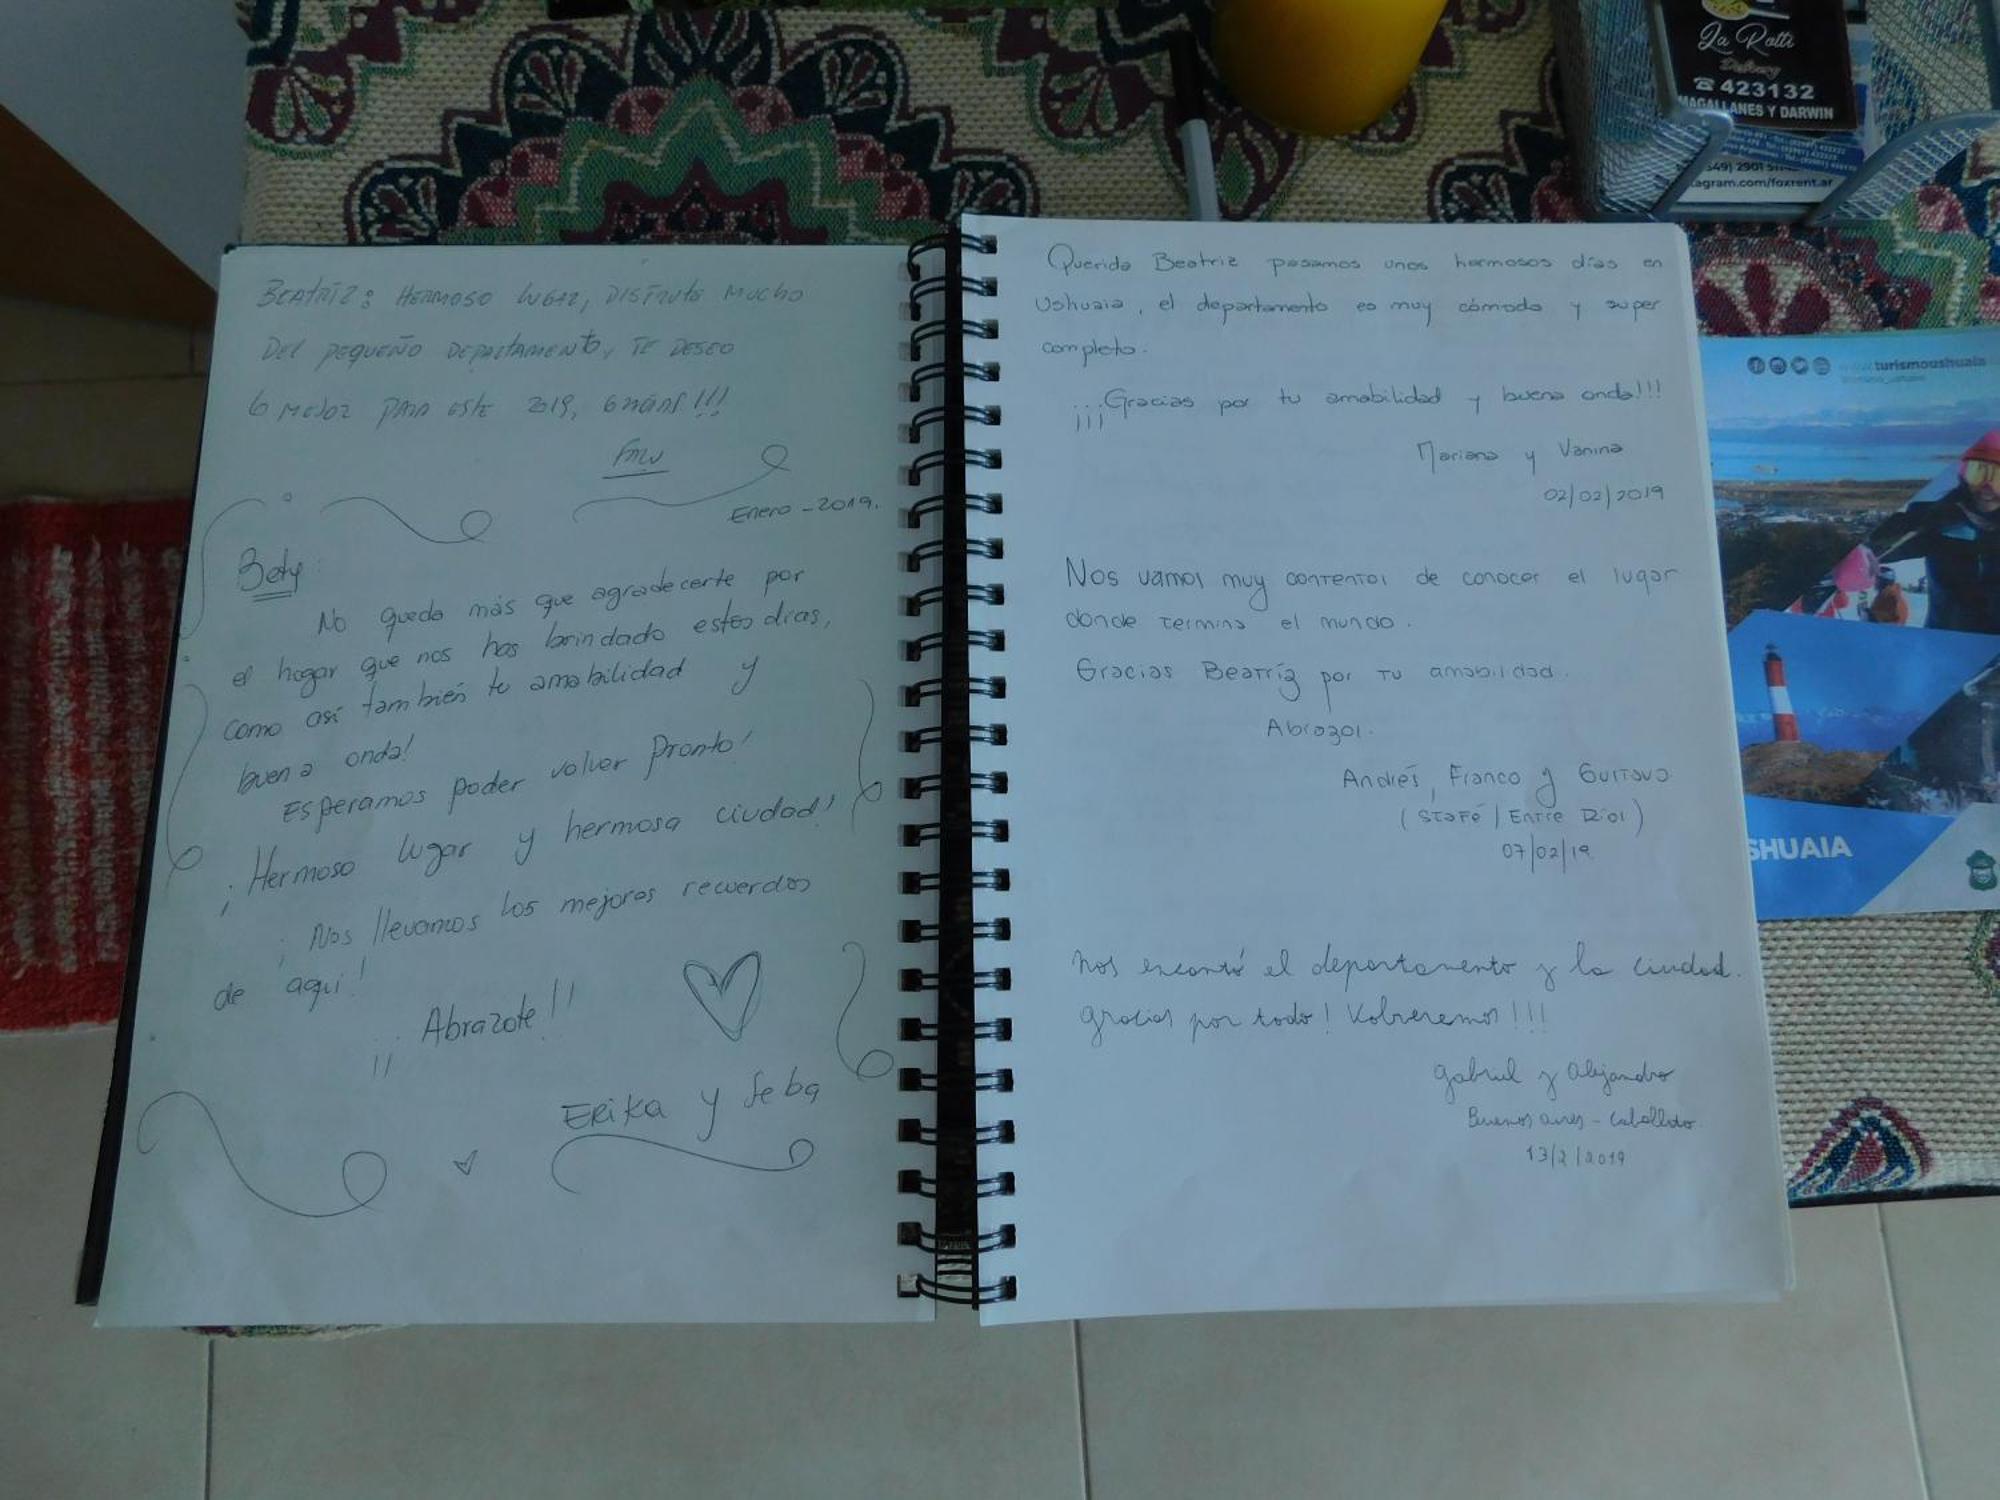 BEATRIZ: HERMOSO LUGAR, DISFRUTE MUCHO
DEL PEQUEÑO DEPARTAMENTO, TE DESEO
LO MEJOR PARA ESTE 2019, GRACIAS!!!
Enero - 2019.
Bety:
No queda más que agradecerte por
el hogar que nos has brindado estos días,
como así también tu amabilidad y
buena onda!
Esperamos poder volver Pronto!
¡Hermoso lugar y hermosa ciudad!
¡Nos llevamos los mejores recuerdos
de aquí!
¡¡Abrazote!!
Erika y Seba
Querida Beatriz pasamos unos hermosos días en
Ushuaia, el departamento es muy cómodo y super
completo.
¡¡¡Gracias por tu amabilidad y buena onda!!!
Mariana y Vanina
02/02/2019
Nos vamos muy contentos de conocer el lugar
donde termina el mundo.
Gracias Beatríz por tu amabilidad.
Abrazos.
Andrés, Franco y Gustavo
(Sta Fé / Entre Ríos)
07/02/19
Nos encantó el departamento y la ciudad.
Gracias por todo! Volveremos!!!
Gabriel y Alejandro
Buenos Aires - Caballito.
13/2/2019
La Ratti
Delivery
☎ 423132
MAGALLANES Y DARWIN
tagram.com/foxrent.ar
www.turismoushuaia
SHUAIA